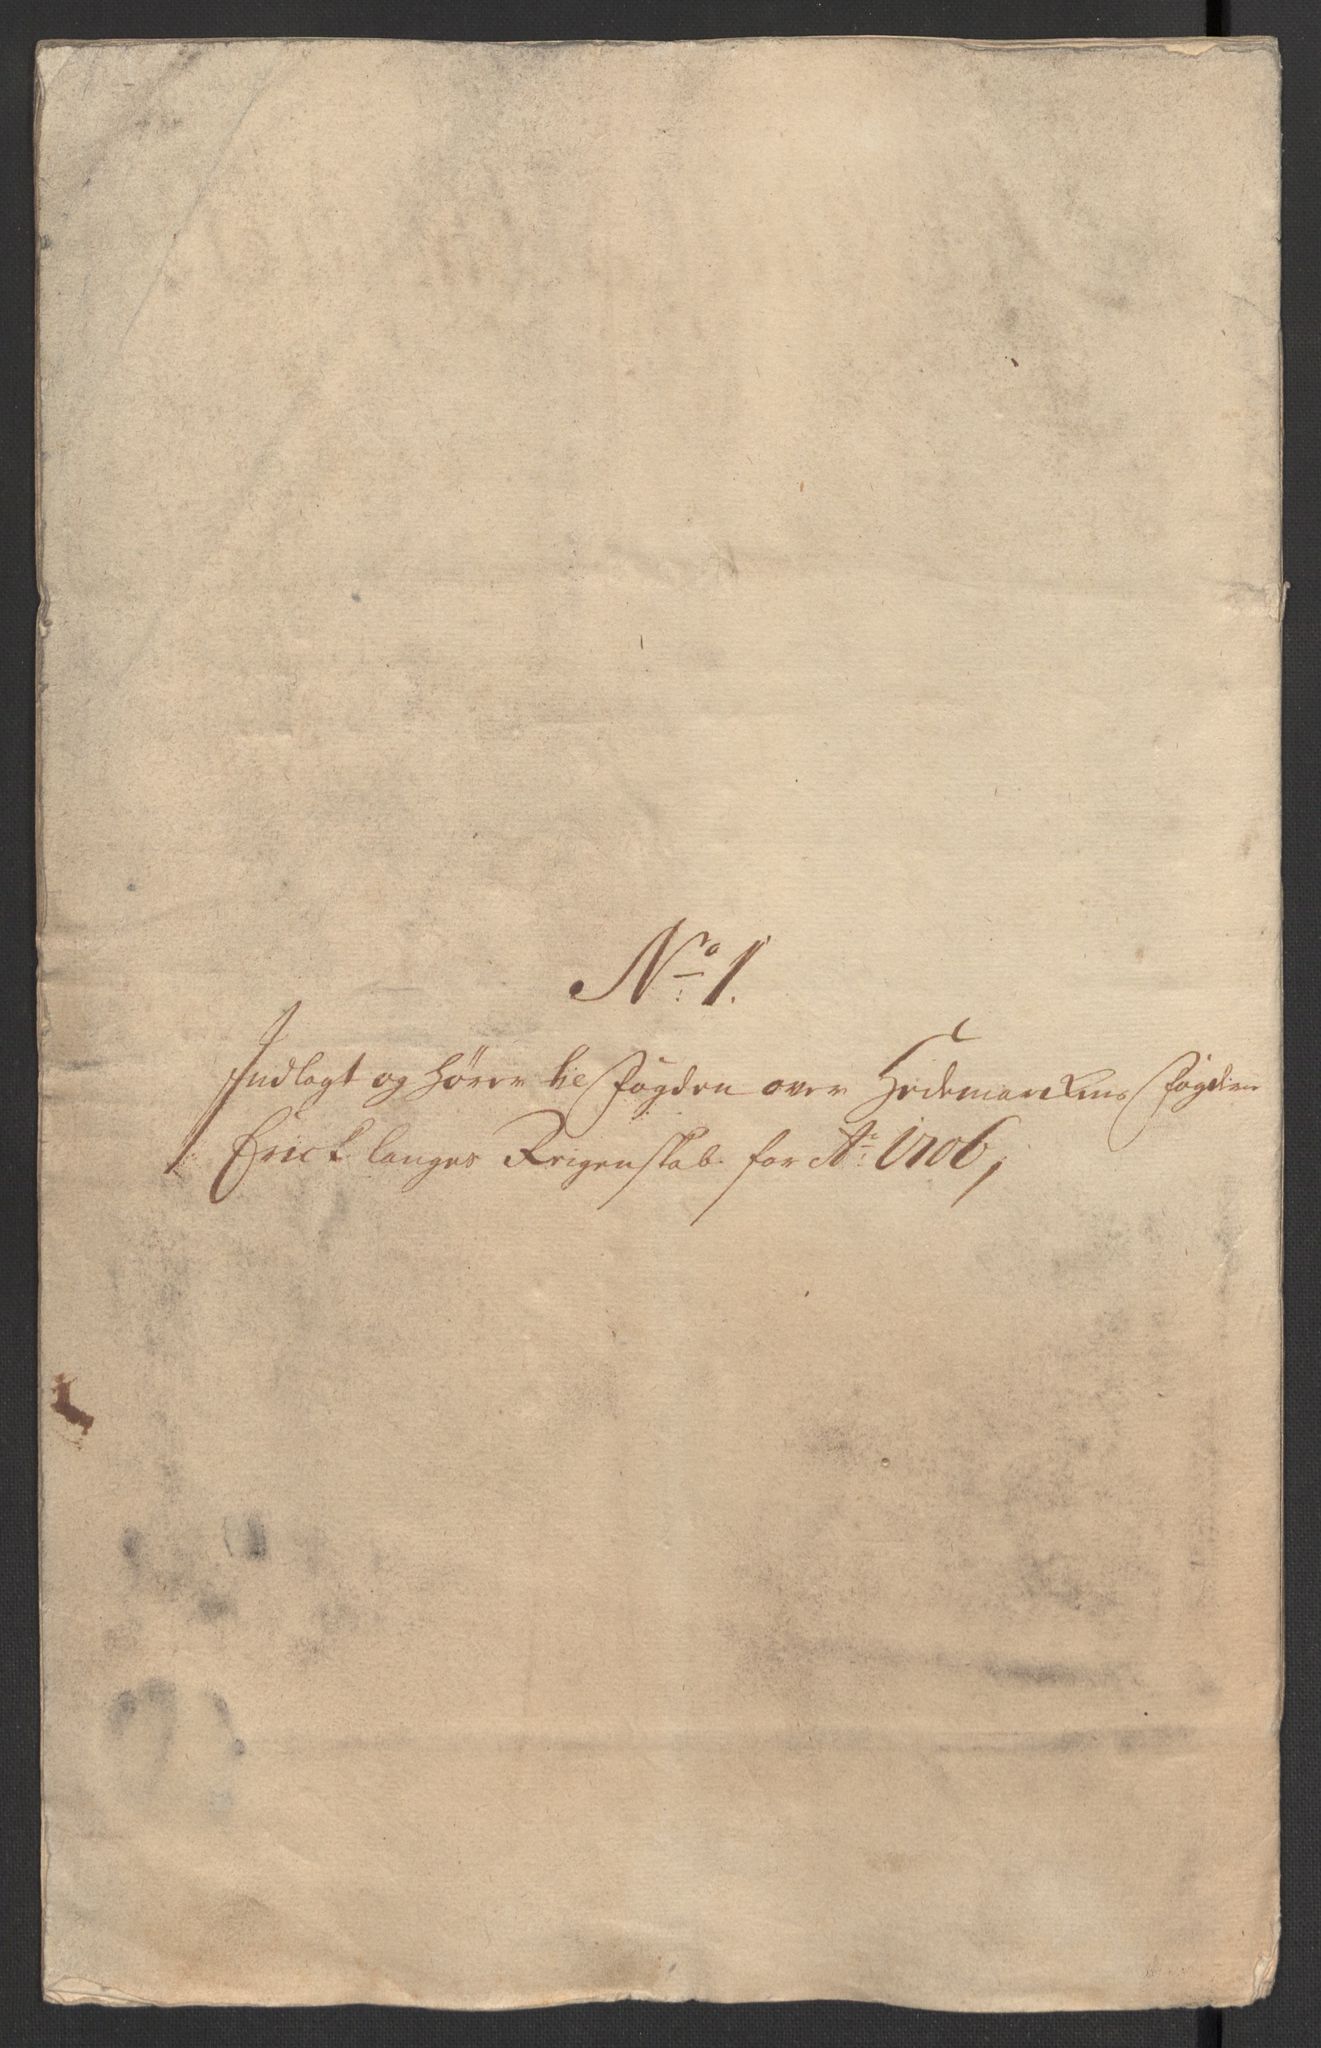 No 1.
Indlagt og hörer til Fogden over Hedemarckens Fogderie
Erick Langes Reigenskab for Ao: 1706,